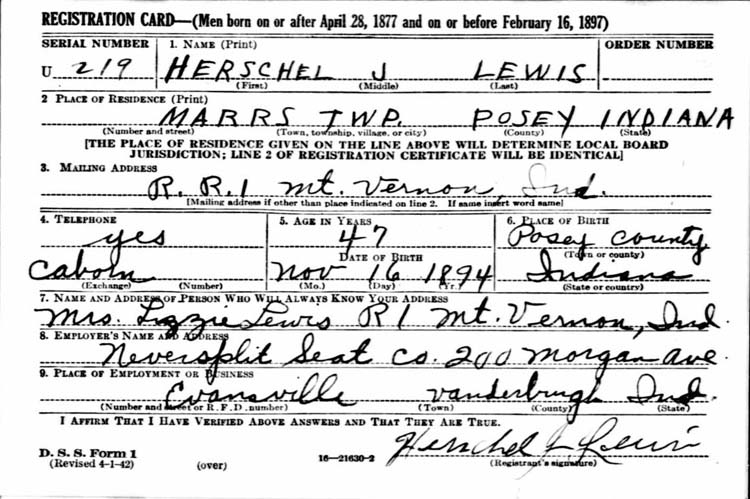 REGISTRATION CARD—(Men born on or after April 28, 1877 and on or before February 16, 1897)
SERIAL NUMBER 1. NAME (Print) ORDER NUMBER
U 219 HERSCHEL J LEWIS
(First) (Middle) (Last)
2 PLACE OF RESIDENCE (Print)
MARRS TWP. POSEY INDIANA
(Number and street) (Town, township, village, or city) (County) (State)
[THE PLACE OF RESIDENCE GIVEN ON THE LINE ABOVE WILL DETERMINE LOCAL BOARD
JURISDICTION; LINE 2 OF REGISTRATION CERTIFICATE WILL BE IDENTICAL]
3. MAILING ADDRESS
R. R. 1 Mt. Vernon, Ind.
[Mailing address if other than place indicated on line 2. If same insert word same]
4. TELEPHONE 5. AGE IN YEARS 6. PLACE OF BIRTH
yes 47 Posey County
DATE OF BIRTH (Town or county)
Caborn Nov 16 1894 Indiana
(Exchange) (Number) (Mo.) (Day) (Yr.) (State or country)
7. NAME AND ADDRESS OF PERSON WHO WILL ALWAYS KNOW YOUR ADDRESS
Mrs. Lizzie Lewis R 1 Mt. Vernon, Ind.
8. EMPLOYER'S NAME AND ADDRESS
Neversplit Seat Co. 200 Morgan Ave
9. PLACE OF EMPLOYMENT OR BUSINESS
Evansville Vanderburgh Ind.
(Number and street or R. F. D. number) (Town) (County) (State)
I AFFIRM THAT I HAVE VERIFIED ABOVE ANSWERS AND THAT THEY ARE TRUE.
Herschel J Lewis
D. S. S. Form 1
(Revised 4-1-42) (over) 16—21630-2 (Registrant's signature)